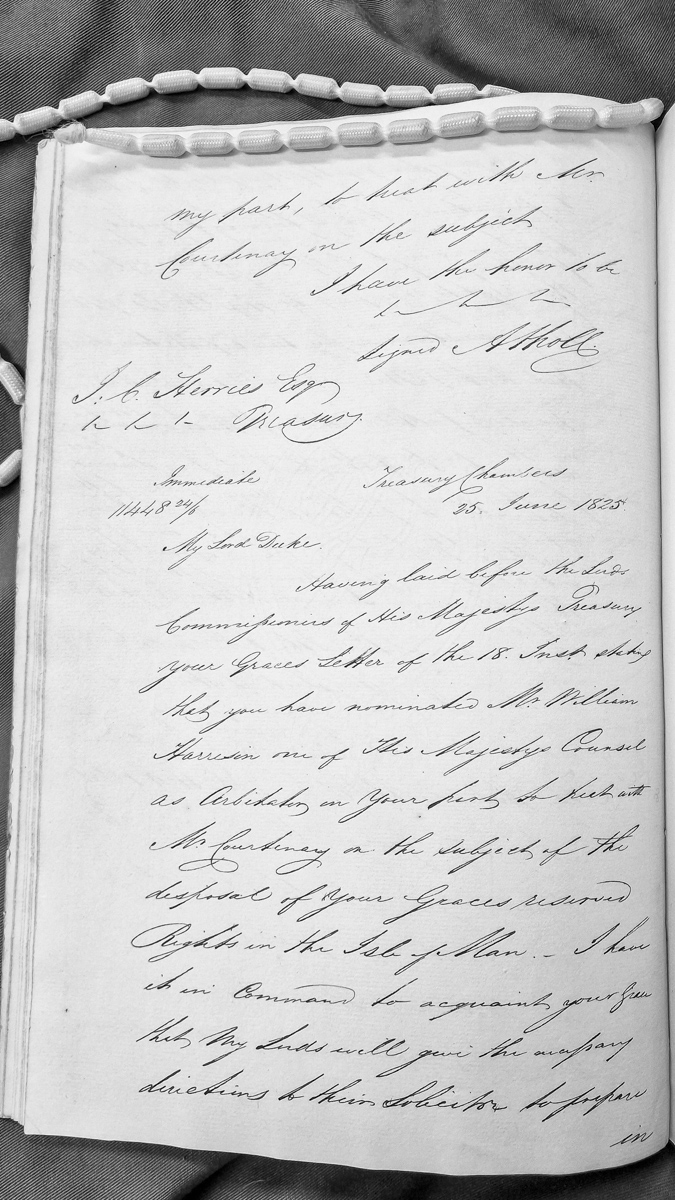 my part, to treat with Mr.
Courtenay on the subject
I have the honor to be
signed Atholl.
J. C. Herries Esqr
Treasury.
Immediate
Treasury Chambers
11448 24/6
25. June 1825.
My Lord Duke.
Having laid before the Lords
Commissioners of His Majestys Treasury
your Graces Letter of the 18. Inst. stating
that you have nominated Mr. William
Harrison one of His Majestys Counsel
as Arbitrator on Your part to treat with
Mr. Courtenay on the subject of the
disposal of Your Graces reserved
Rights in the Isle of Man. - I have
it in Command to acquaint your Grace
that My Lords will give the necessary
directions to their Solicitor to prepare
in